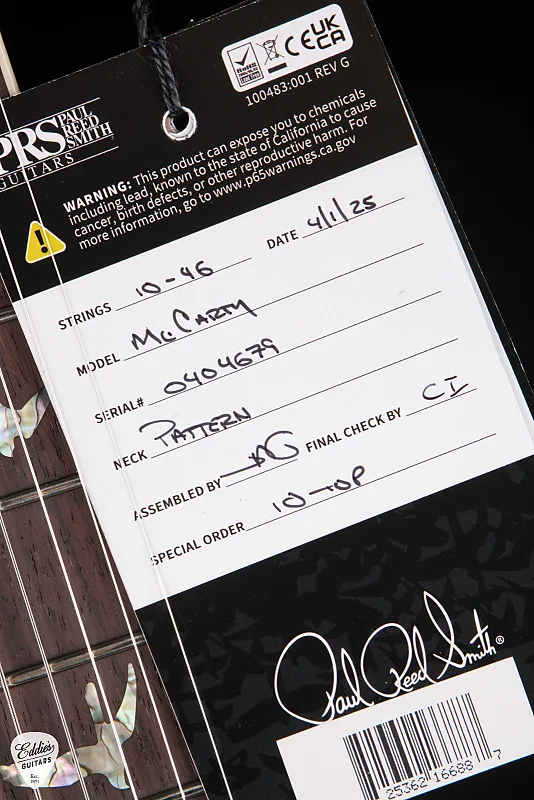 RoHS
CE UK CA
100483:001 REV G
PRS PAUL REED SMITH
GUITARS
WARNING: This product can expose you to chemicals
including lead, known to the state of California to cause
cancer, birth defects, or other reproductive harm. For
more information, go to www.p65warnings.ca.gov
STRINGS 10-46 DATE 4/1/25
MODEL McCARTY
SERIAL# 0404679
NECK PATTERN
ASSEMBLED BY FINAL CHECK BY CI
SPECIAL ORDER 10-TOP
Paul Reed Smith®
25362 16688 7
Eddie's
GUITARS
Est.